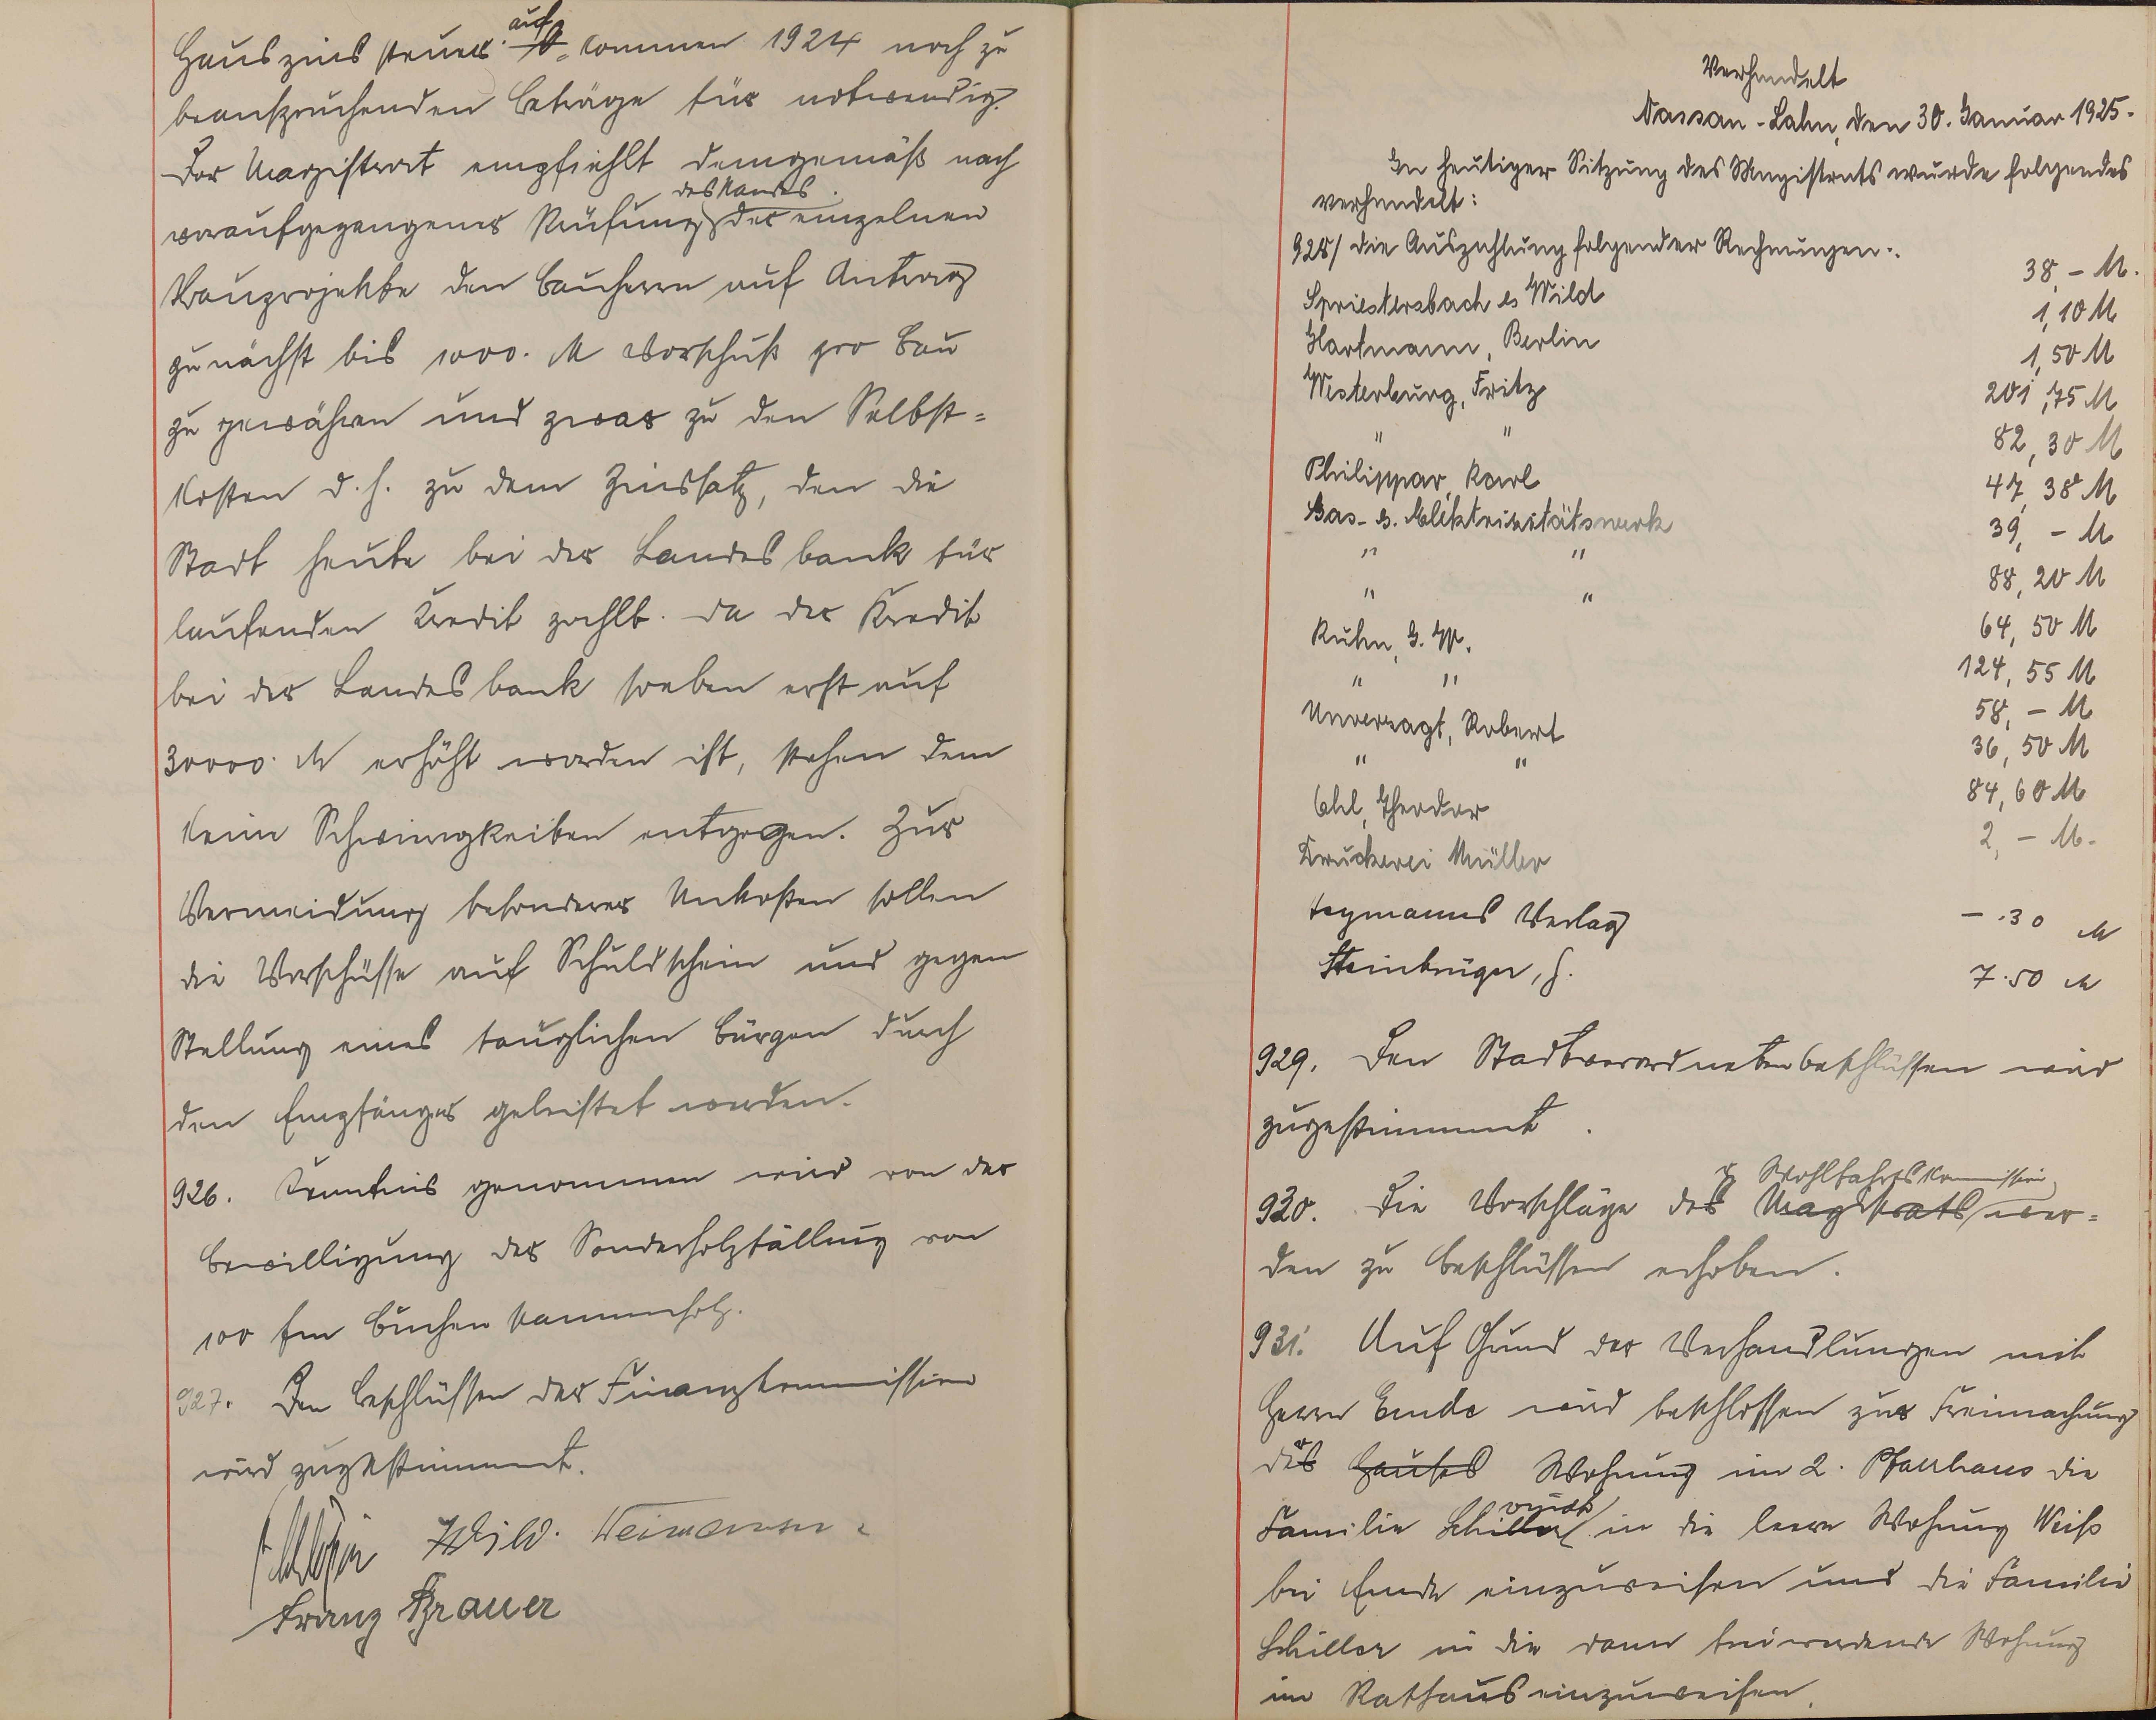 Hauszinssteuer auf kommen 1924 noch zu
beanspruchenden Beträge für notwendig.
Der Magistrat empfiehlt demgemäß nach
voraufgegangener Prüfung des Standes der einzelnen
Bauprojekte den Bauherrn auf Antrag
zunächst bis 1000. M Vorschuß pro Bau
zu gewähren und zwar zu den Selbst-
kosten d.h. zu dem Zinssatz, den die
Stadt heute bei der Landesbank für
laufenden Kredit zahlt. Da der Kredit
bei der Landesbank soeben erst auf
30000. M erhöht worden ist, stehen dem
keine Schwierigkeiten entgegen. Zur
Vermeidung besonderer Unkosten sollen
die Vorschüsse auf Schuldschein und gegen
Stellung eines tauglichen Bürgen durch
den Empfänger geleistet werden.
926. Kenntnis genommen wird von der
Bewilligung der Sonderholzfällung von
100 fm Buchenstammholz.
927. Den Beschlüssen der Finanzkommission
wird zugestimmt.
Wild.
Franz Brauer
Verhandelt
Nassau-Lahn, den 30. Januar 1925.
In heutiger Sitzung des Magistrats wurde folgendes
verhandelt:
928/ die Auszahlung folgender Rechnungen:
Spriestersbach & Wild 38,- M.
Hartmann, Berlin 1,10 M
Westerburg, Fritz 1,50 M
" " 201,75 M
Philippar, Karl 82,30 M
Gas- & Elektrizitätswerk 47,38 M
" " 39,- M
" " 88,20 M
Kuhn, G. W. 64,50 M
" " 124,55 M
Unverzagt, Robert 58,- M
" " 36,50 M
Theodor 84,60 M
Druckerei Müller 2,- M.
Verlag -.30 M
7.50 M
929. Den Stadtverordnetenbeschlüssen wird
zugestimmt.
930. Die Vorschläge der Wohlfahrtskommission Magistrats wer-
den zu Beschlüssen erhoben.
931. Auf Grund der Verhandlungen mit
Herrn Ende wird beschlossen zur Freimachung
der Hauses Wohnung im 2. Pfarrhaus die
Familie Schiller in die leere Wohnung Weiß
bei Ende einzuweisen und die Familie
Schiller in die dann freiwerdende Wohnung
im Rathaus einzuweisen.